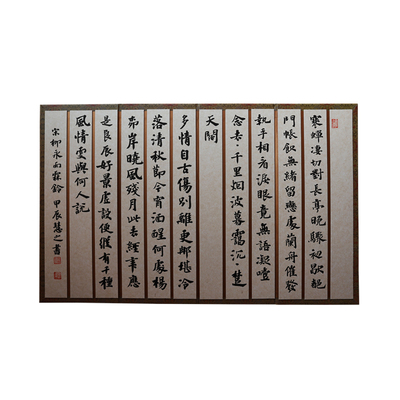 寒蟬凄切對長亭晚驟初歇都
門帳飲無緒留戀處蘭舟催發
執手相看淚眼竟無語凝噎
念去々千里烟波暮靄沉々楚
天闊
多情自古傷別離更那堪冷
落清秋節今宵酒醒何處楊
柳岸曉風殘月此去經年應
是良辰好景虛設便縱有千種
風情更與何人説
宋柳永雨霖鈴 甲辰慧之書